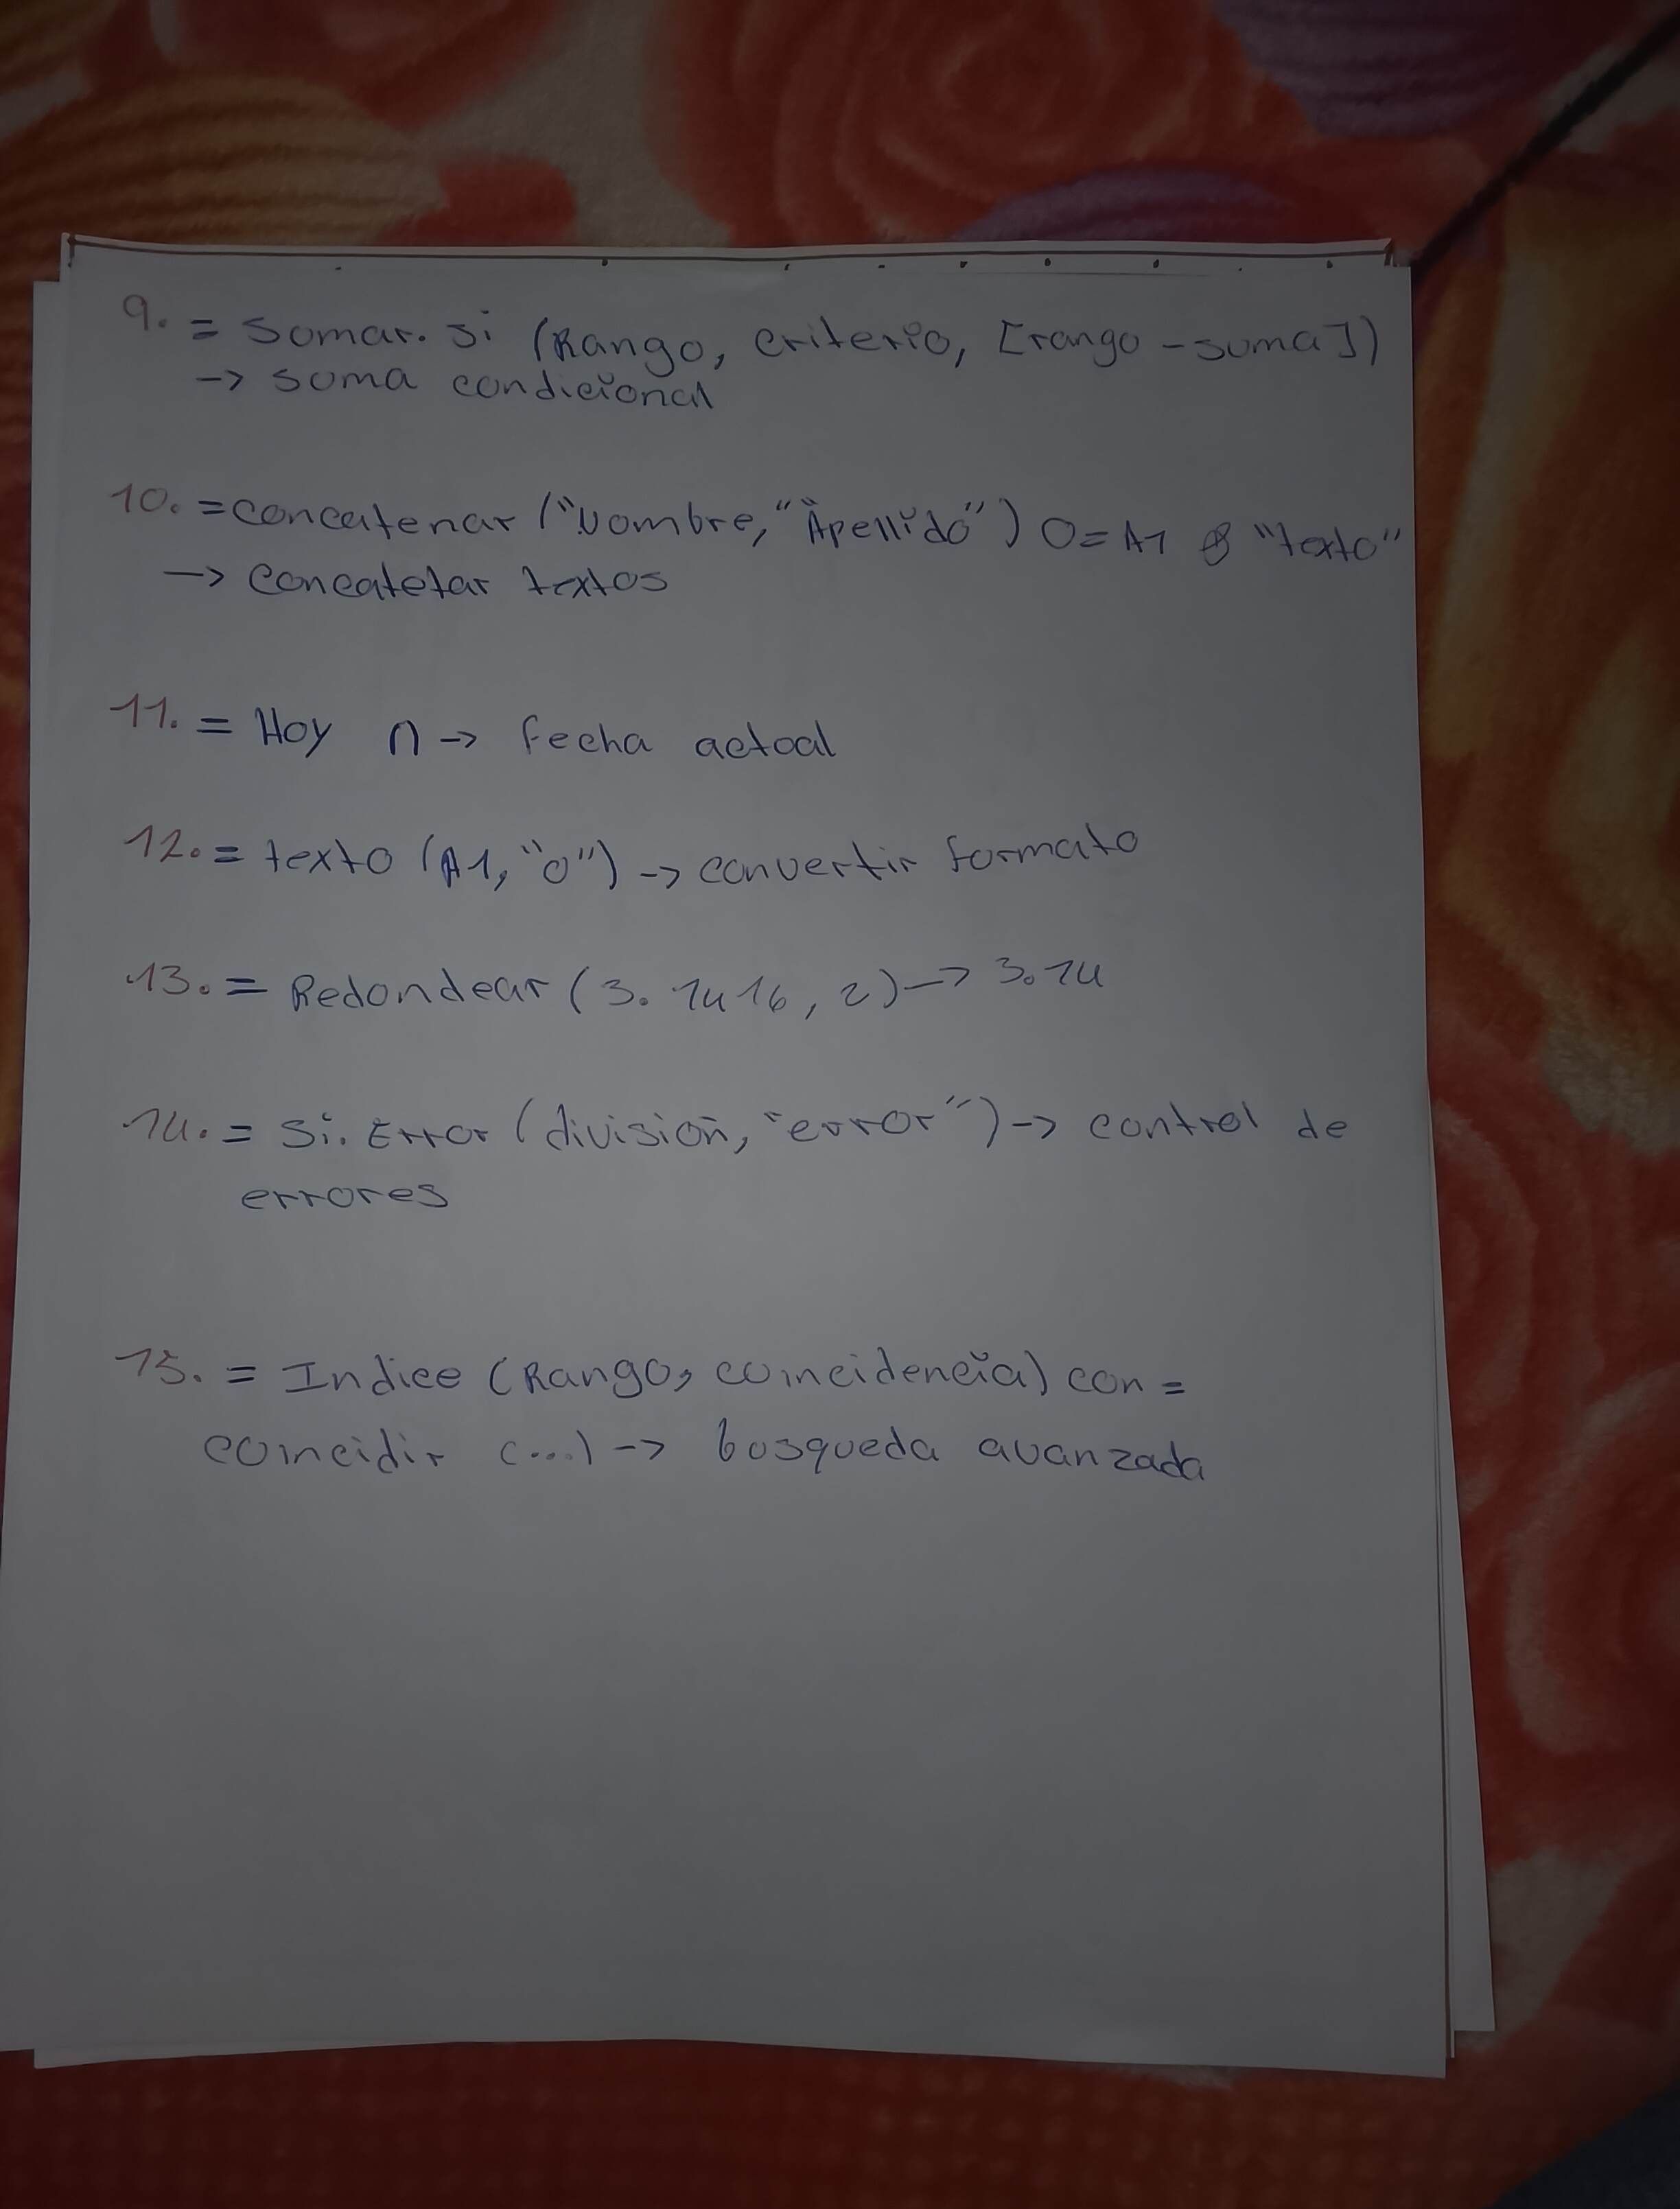 9. = Somar. Si (Rango, criterio, [rango - suma])
-> suma condicional
10. = concatenar ("Nombre, "Apellido") O = A1 & "texto"
-> concatetar textos
11. = Hoy () -> fecha actoal
12. = texto (A1, "0") -> convertir formato
13. = Redondear (3.1416, 2) -> 3.14
14. = Si. Error (división, "error") -> control de
errores
15. = Indice (Rango, coincidencia) con =
coincidir (...) -> bosqueda avanzada